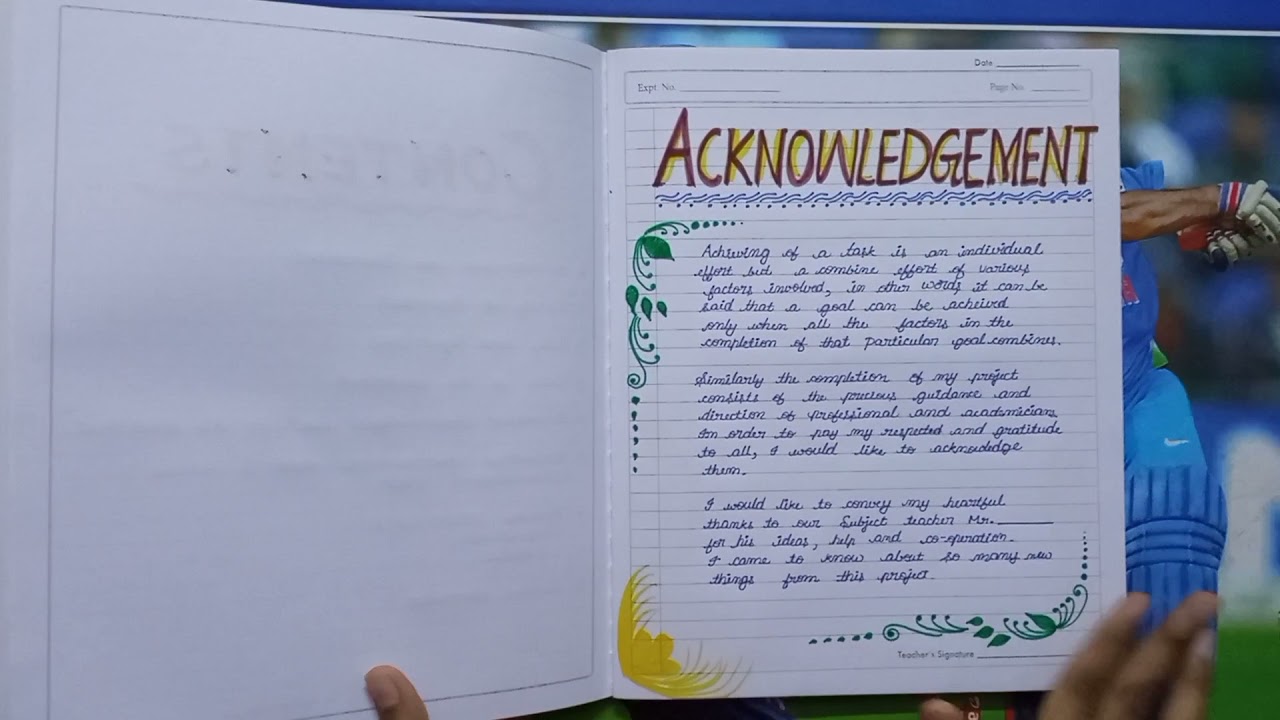 Date
Expt. No.
Page No.
ACKNOWLEDGEMENT
Achieving of a task is an individual
effort but a combine effort of various
factors involved, in other words it can be
said that a goal can be acheived
only when all the factors in the
completion of that particular goal combines.
Similarly the completion of my project
consists of the precious guidance and
direction of professional and academicians
In order to pay my respected and gratitude
to all, I would like to acknowledge
them.
I would like to convey my heartful
thanks to our Subject teacher Mr.
for his ideas, help and co-operation.
I came to know about so many new
things from this project.
Teacher's Signature